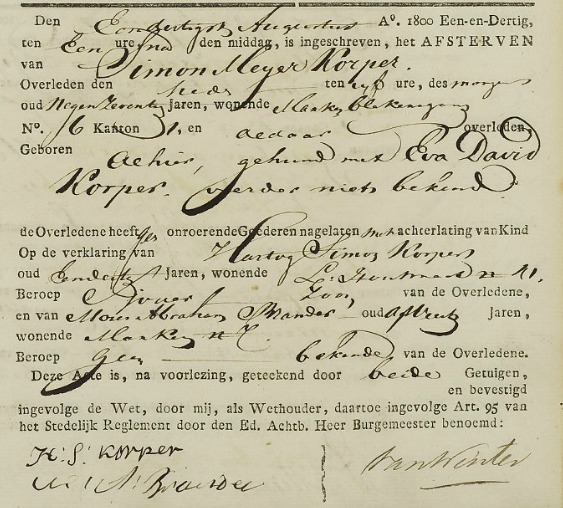 Den Eenendertigste Augustus Aº. 1800 Een-en-Dertig,
ten Een ure, des na den middag, is ingeschreven, het AFSTERVEN
van Simon Meyer Korper.
Overleden den heden ten vyf ure, des morgens
oud Negenzeventig jaren, wonende Marken
Nº. 16 Kanton 1, en aldaar overleden
Geboren
alhier, gehuwd met Eva David
Korper. verder niets bekend.
de Overledene heeft geen onroerende Goederen nagelaten met achterlating van Kind
Op de verklaring van Hartog Simon Korper
oud jaren, wonende Lr: Houtmarkt nº 41.
Beroep Zoon van de Overledene,
en van Moses Abraham oud jaren,
wonende Marken nº
Beroep Geen bekende van de Overledene.
Deze Acte is, na voorlezing, geteekend door beide Getuigen,
en bevestigd
ingevolge de Wet, door mij, als Wethouder, daartoe ingevolge Art. 95 van
het Stedelijk Reglement door den Ed. Achtb. Heer Burgemeester benoemd:
H: S: Korper
van Winter